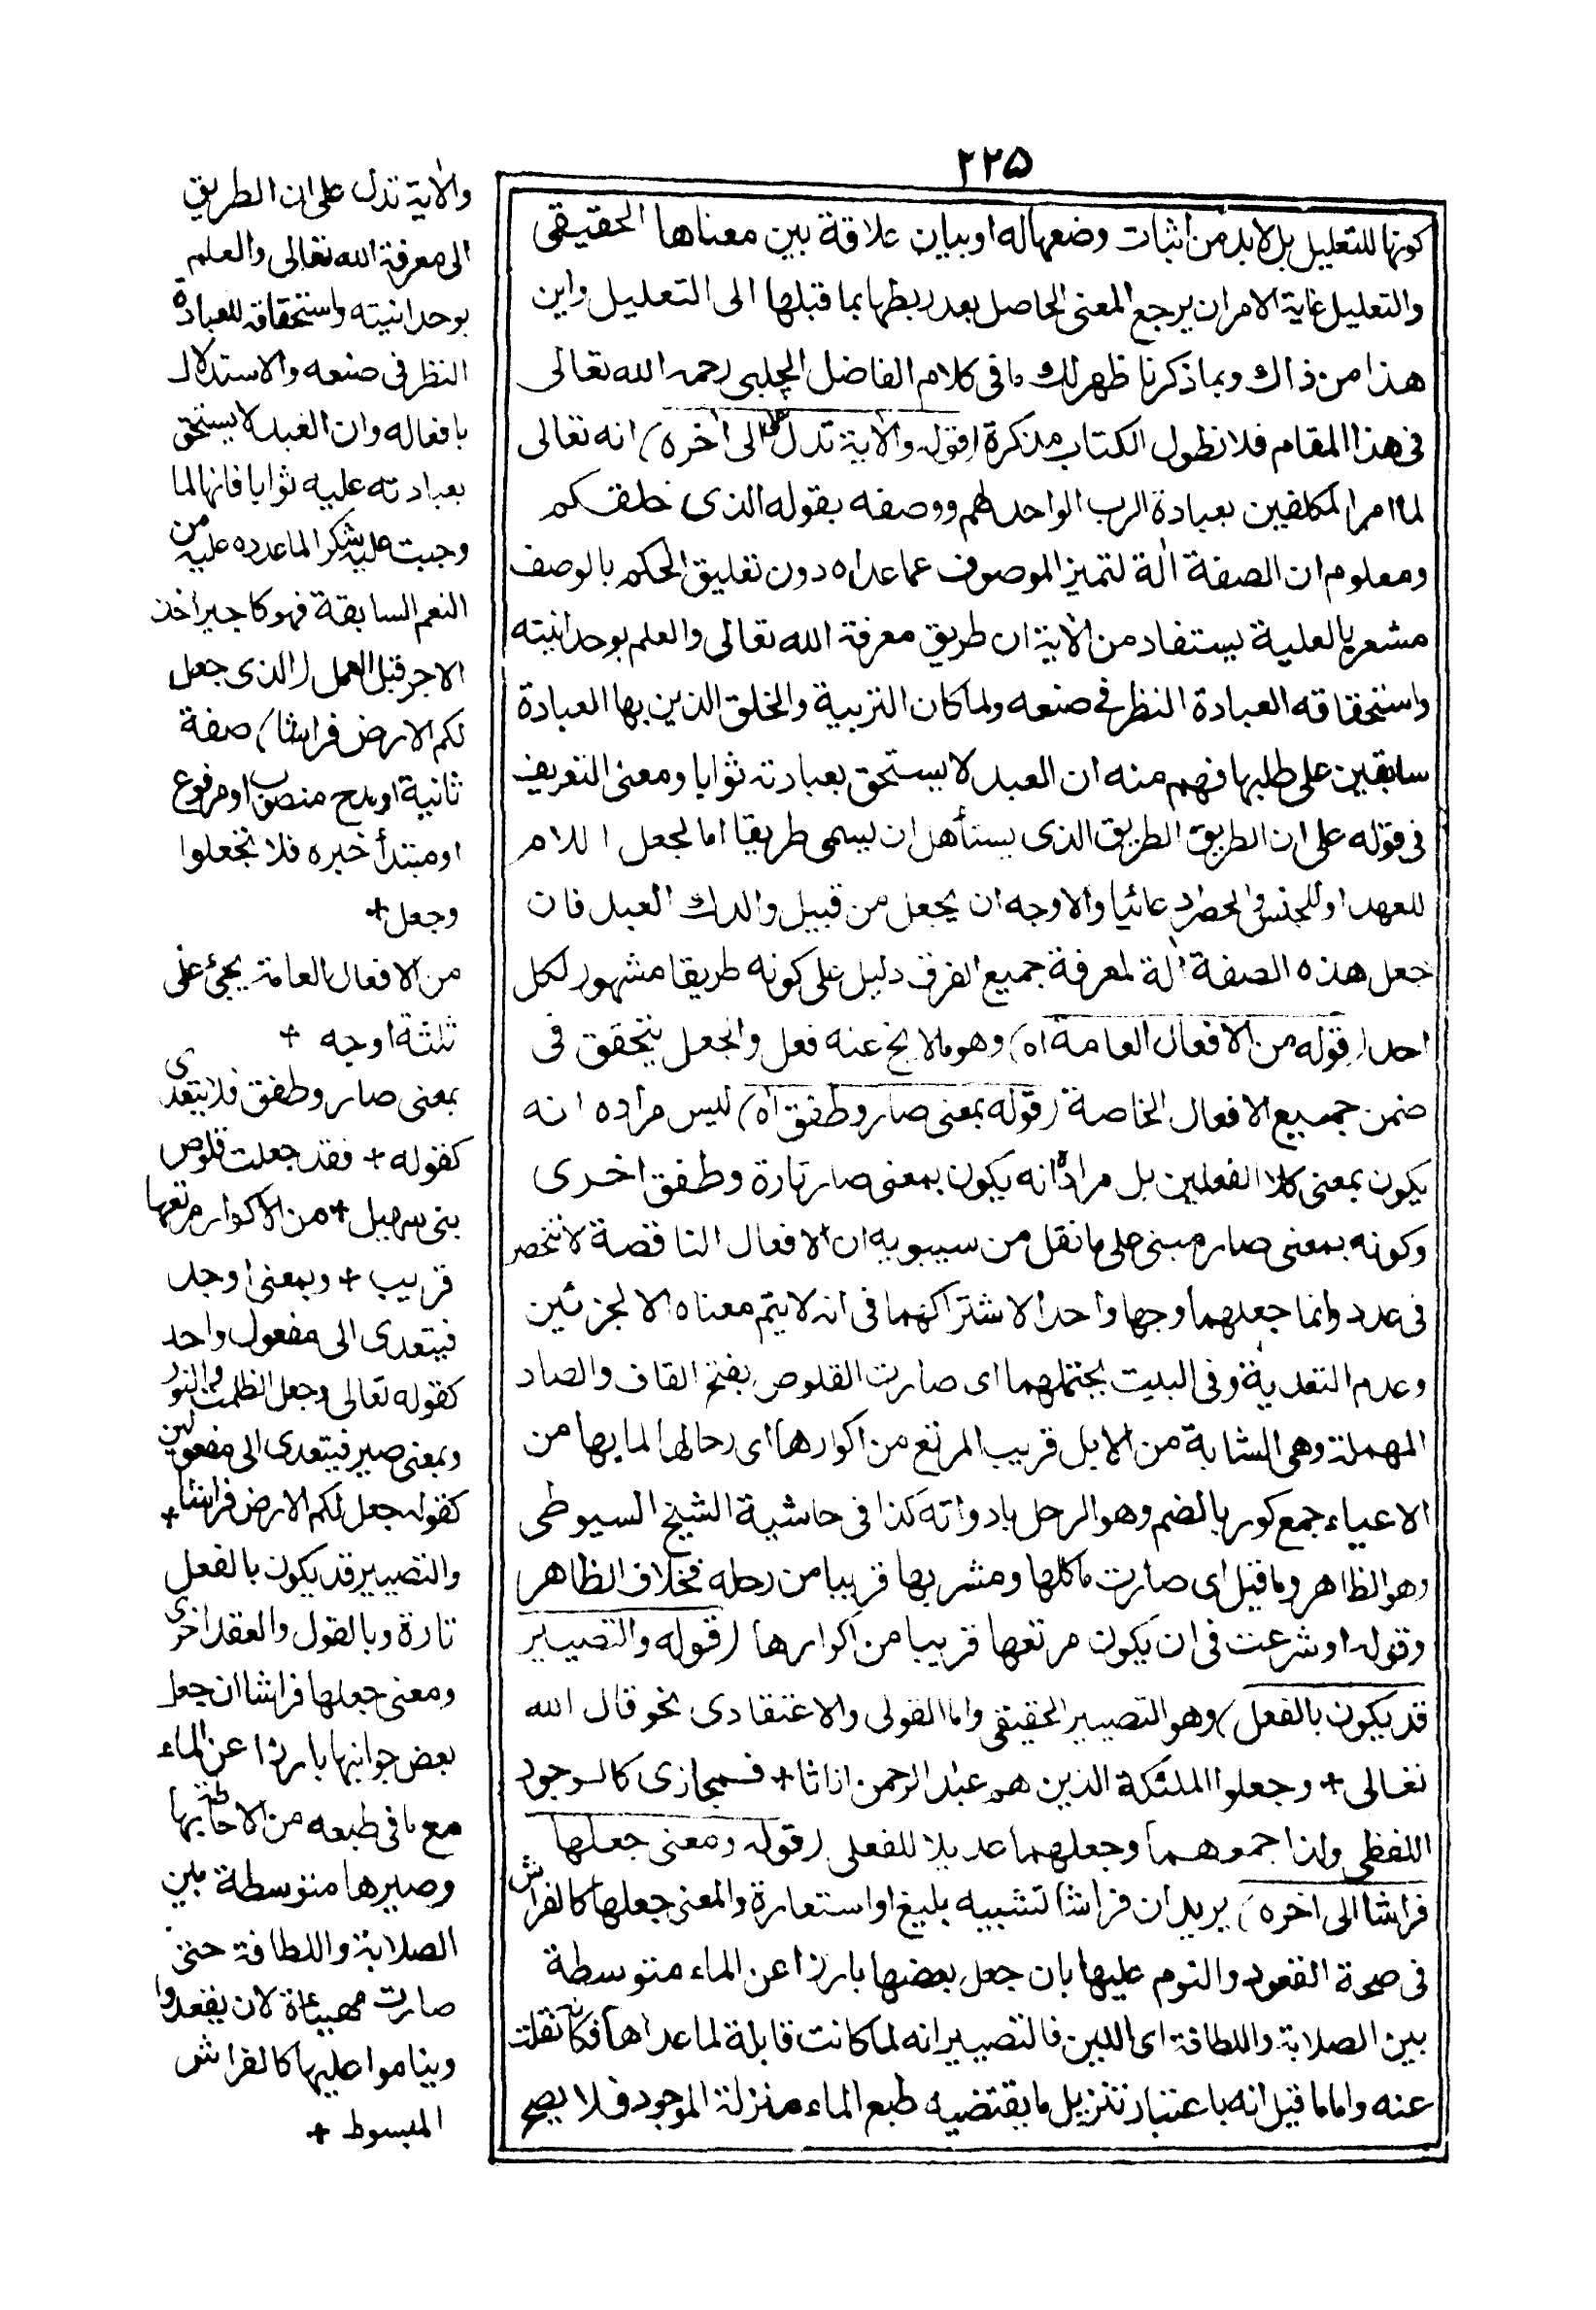 ٢٢٥
كونها للتعليل بل لابد من اثبات وضعها له او بيان علاقة بين معناها الحقيقى
والتعليل غاية الامر ان يرجع المعنى الحاصل بعد ربطها بما قبلها الى التعليل واين
هذا من ذاك وبما ذكرنا ظهر لك ما فى كلام الفاضل الچلبى رحمه الله تعالى
فى هذا المقام فلا نطول الكتاب بذكره (قوله والآية تدل على الى آخره) انه تعالى
لما امر المكلفين بعبادة الرب الواحد لهم ووصفه بقوله الذى خلقكم
ومعلوم ان الصفة آلة لتميز الموصوف عما عداه دون تعليق الحكم بالوصف
مشعر بالعلية يستفاد من الآية ان طريق معرفة الله تعالى والعلم بوحدانيته
واستحقاقه العبادة النظر فى صنعه ولما كان التربية والخلق الذين بها العبادة
سابقين على طلبها فهم منه ان العبد لا يستحق بعبادته ثوابا ومعنى التعريف
فى قوله على ان الطريق الطريق الذى يستأهل ان يسمى طريقا اما لجعل اللام
للعهد او للجنس والحصر ادعائيا والاوجه ان يجعل من قبيل والدك العبد فان
جعل هذه الصفة آلة لمعرفة جميع الفرق دليل على كونه طريقا مشهور لكل
احد (قوله من الافعال العامة اه) وهو ما لا يخ عنه فعل والجعل يتحقق فى
ضمن جميع الافعال الخاصة (قوله بمعنى صار وطفق اه) ليس مراده انه
يكون بمعنى كلا الفعلين بل مراده انه يكون بمعنى صار تارة وطفق اخرى
وكونه بمعنى صار مبنى على ما نقل من سيبويه ان الافعال الناقصة لا تنحصر
فى عدد وانما جعلهما وجها واحدا لاشتراكهما فى انه لا يتم معناه الا لجزئين
وعدم التعدية وفى البيت يحتملهما اى صارت القلوص بفتح القاف والصاد
المهملة وهى الشابة من الابل قريب المرتع من اكوارها اى رحالها لما بها من
الاعياء جمع كور بالضم وهو الرحل بادواته كذا فى حاشية الشيخ السيوطى
وهو الظاهر وما قيل اى صارت ماكلها ومشربها قريبا من رحله فخلاف الظاهر
وقوله او شرعت فى ان يكون مرتعها قريبا من اكوارها (قوله والتصيير
قد يكون بالفعل) وهو التصيير الحقيقى واما القولى والاعتقادى نحو قال الله
تعالى + وجعلوا الملئكة الذين هم عبد الرحمن اناثا + فمجازى كالوجود
اللفظى ولذا جمعهما وجعلهما عديلا للفعلى (قوله ومعنى جعلها
فراشا الى اخره) يريد ان فراشا تشبيه بليغ او استعارة والمعنى جعلها كالفراش
فى صحة القعود والنوم عليها بان جعل بعضها بارزا عن الماء متوسطة
بين الصلابة واللطافة اى اللين فالتصيير انه لما كانت قابلة لما عداها فكانه نقلت
عنه واما ما قيل انه باعتبار تنزيل ما يقتضيه طبع الماء منزلة الموجود فلا يصح
والآية تدل على ان الطريق
الى معرفة الله تعالى والعلم
بوحدانيته واستحقاقه للعبادة
النظر فى صنعه والاستدلال
بافعاله وان العبد لا يستحق
بعبادته عليه ثوابا فانها لما
وجبت عليه شكرا لما عدده عليه من
النعم السابقة فهو كاجير اخذ
الاجر قبل العمل (الذى جعل
لكم الارض فراشا) صفة
ثانية او مدح منصوب او مرفوع
او مبتدأ خبره فلا تجعلوا
وجعل +
من الافعال العامة يجئ على
ثلثة اوجه +
بمعنى صار وطفق فلا يتعدى
كقوله + فقد جعلت قلوص
بنى سهيل + من الاكوار مرتعها
قريب + وبمعنى اوجد
فيتعدى الى مفعول واحد
كقوله تعالى وجعل الظلمت والنور
وبمعنى صير فيتعدى الى مفعولين
كقوله جعل لكم الارض فراشا +
والتصيير قد يكون بالفعل
تارة وبالقول والعقد اخرى
ومعنى جعلها فراشا ان جعل
بعض جوانبها بارزا عن الماء
مع ما فى طبعه من الاحاطة بها
وصيرها متوسطة بين
الصلابة واللطافة حتى
صارت مهيأة لان يقعدوا
ويناموا عليها كالفراش
المبسوط +